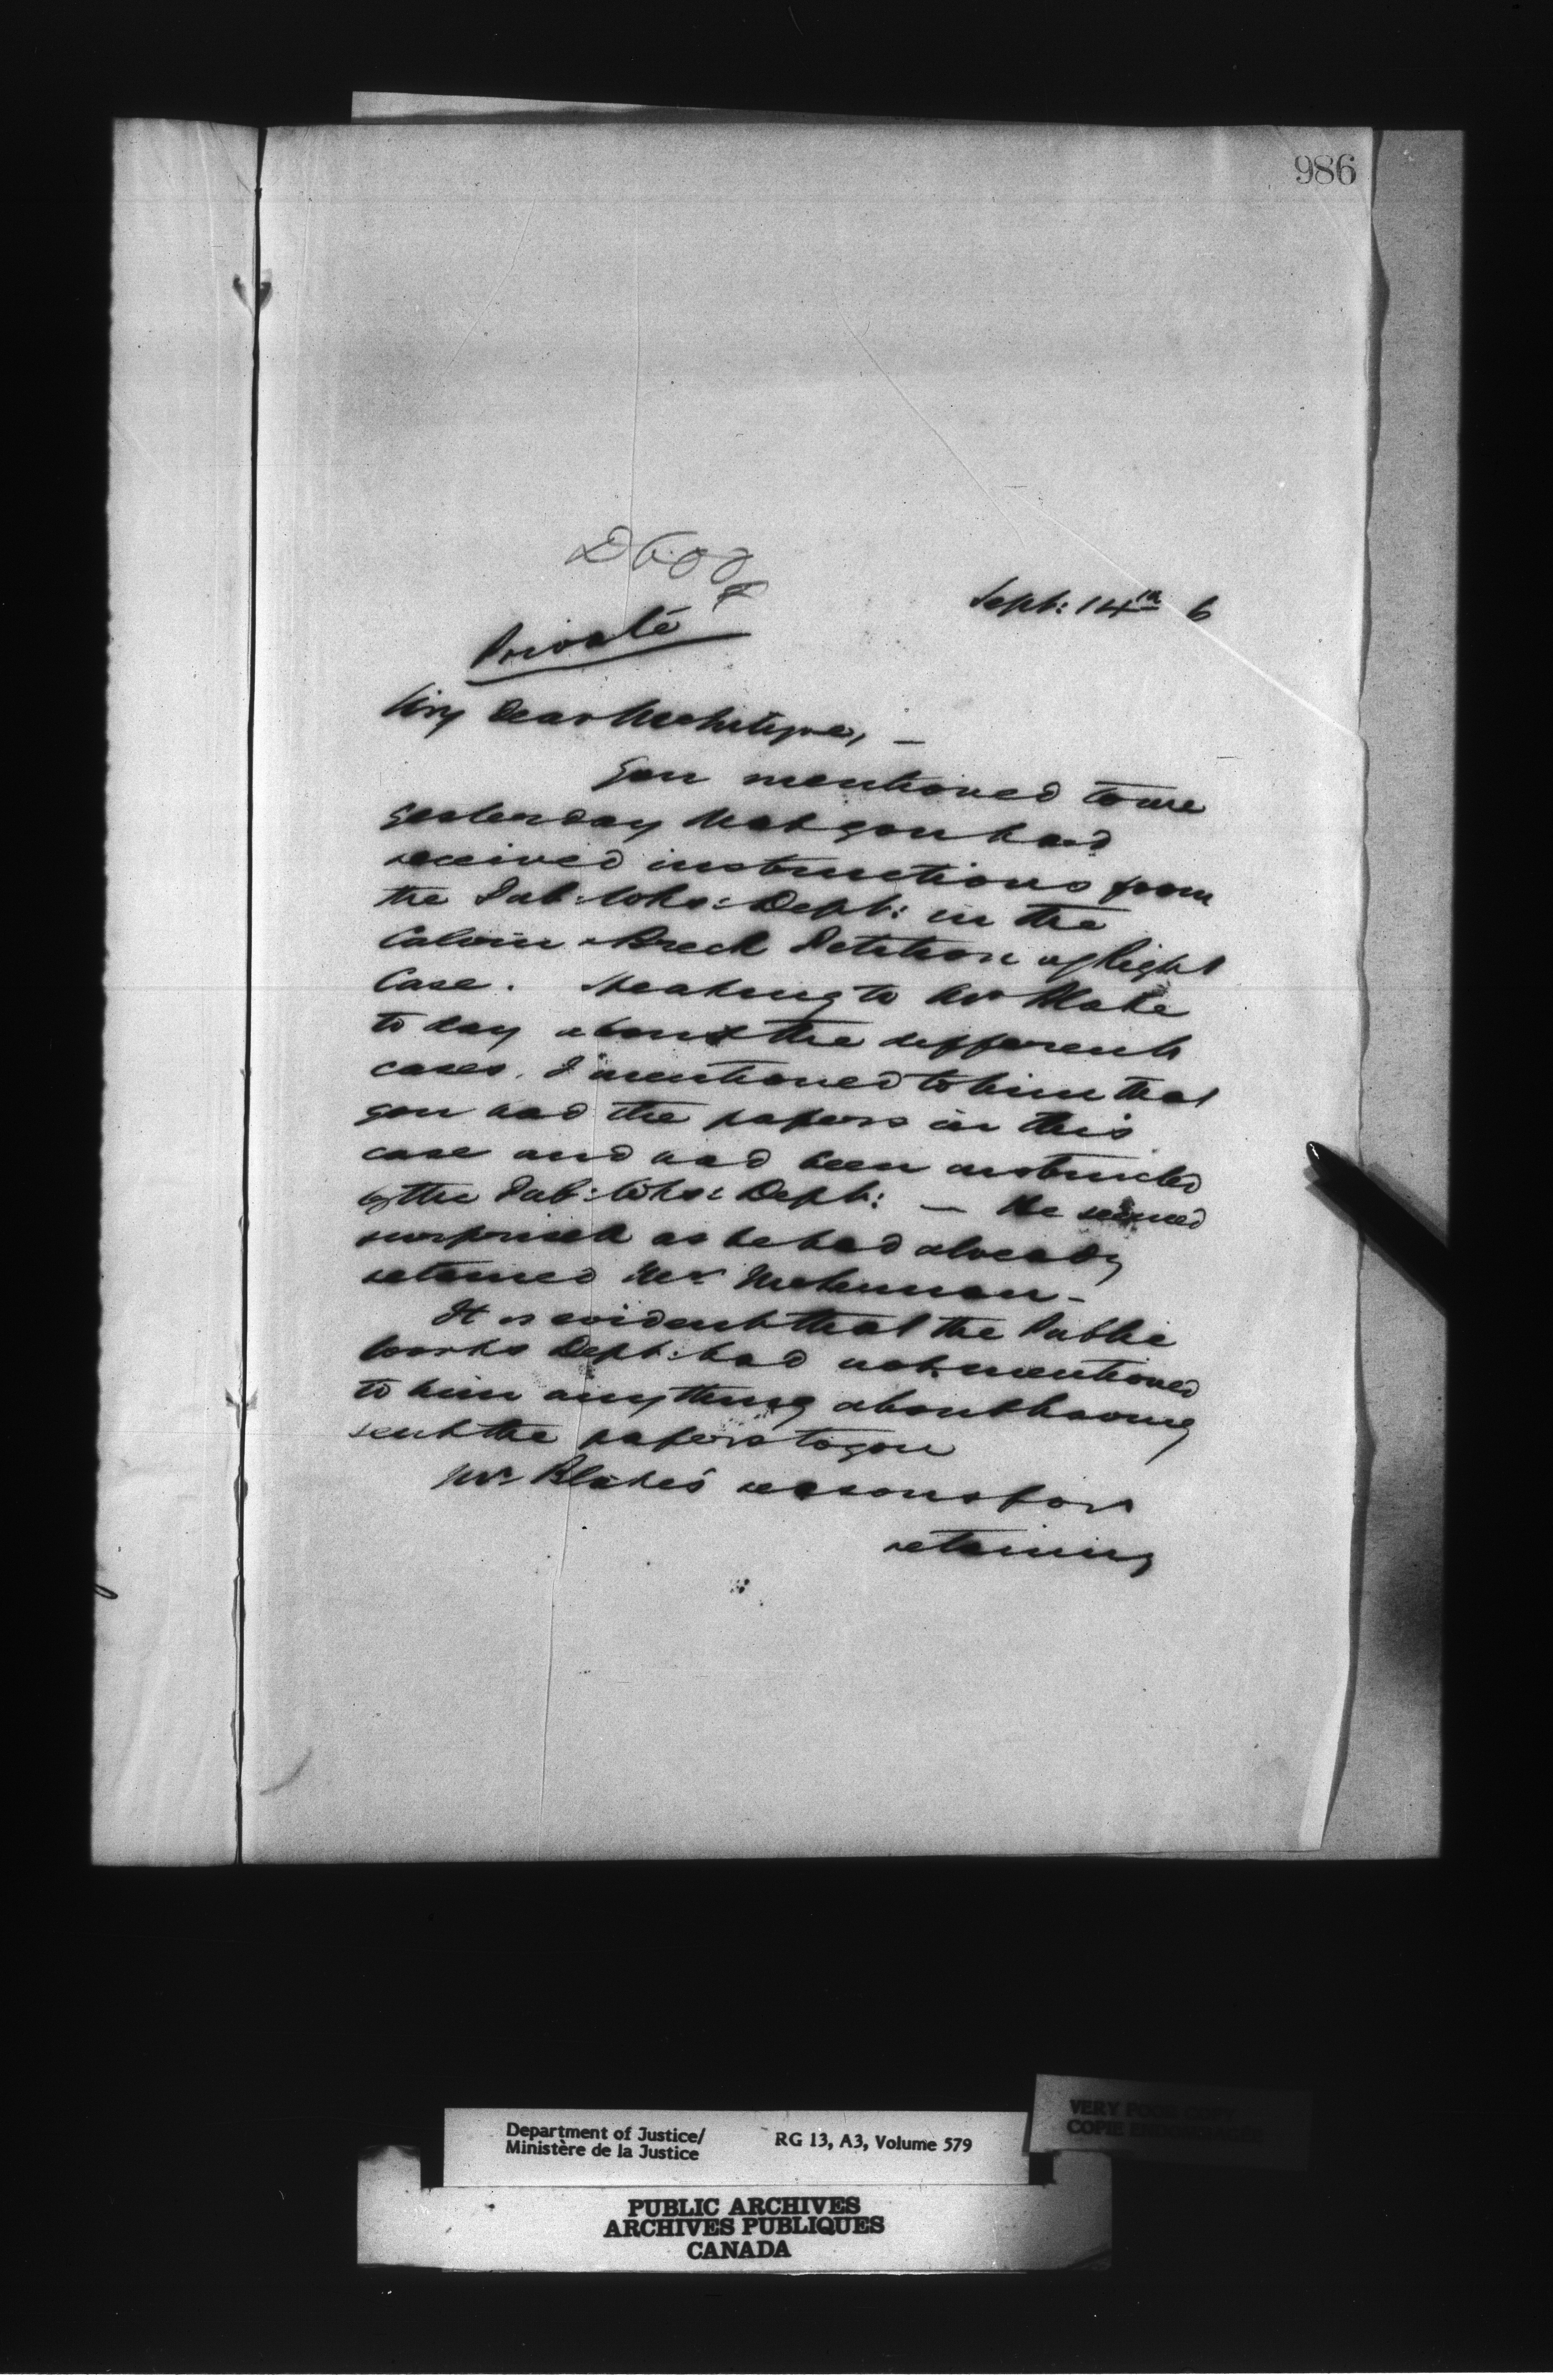 986
Sept: 14th 6
Private
My Dear McIntyre, —
You mentioned to me
yesterday that you had
received instructions from
the Pub: Wks: Dept: in the
Calvin & Breck Petition of Right
Case. Speaking to Mr Blake
to day about the different
cases, I mentioned to him that
you had the papers in this
case and had been instructed
by the Pub: Wks: Dept: — He seemed
surprised as he had already
retained Mr McLennan —
It is evident that the Public
Works Dept: had not mentioned
to him anything about having
sent the papers to you
Mr Blake's reasons for
retaining
Department of Justice/
Ministère de la Justice
RG 13, A3, Volume 579
VERY POOR COPY
COPIE
PUBLIC ARCHIVES
ARCHIVES PUBLIQUES
CANADA